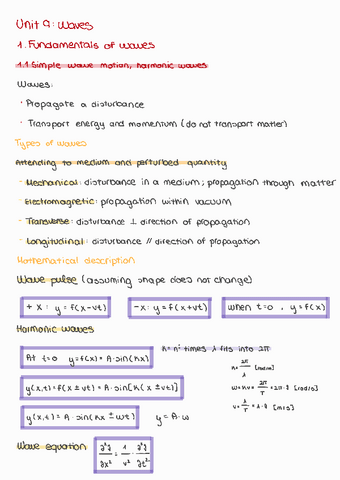 Unit 9: Waves
1. Fundamentals of waves
1.1 Simple wave motion, harmonic waves
Waves:
· Propagate a disturbance
· Transport energy and momentum (do not transport matter)
Types of waves
Attending to medium and perturbed quantity
- Mechanical: disturbance in a medium; propagation through matter
- Electromagnetic: propagation within vacuum
- Transverse: disturbance ⊥ direction of propagation
- Longitudinal: disturbance // direction of propagation
Mathematical description
Wave pulse (assuming shape does not change)
+x: y=f(x-vt) -x: y=f(x+vt) When t=0, y=f(x)
Harmonic waves
K= nº times λ fits into 2π
At t=0 y=f(x)= A·sin(kx) K= 2π/λ [rad/m]
y(x,t)=f(x±vt)=A·sin[K(x±vt)] ω=kv= 2π/T =2π·f [rad/s]
v= λ/T =λ·f [m/s]
y(x,t)= A·sin(kx±ωt) y=A·ω
Wave equation ∂²y/∂x² = 1/v² · ∂²y/∂t²